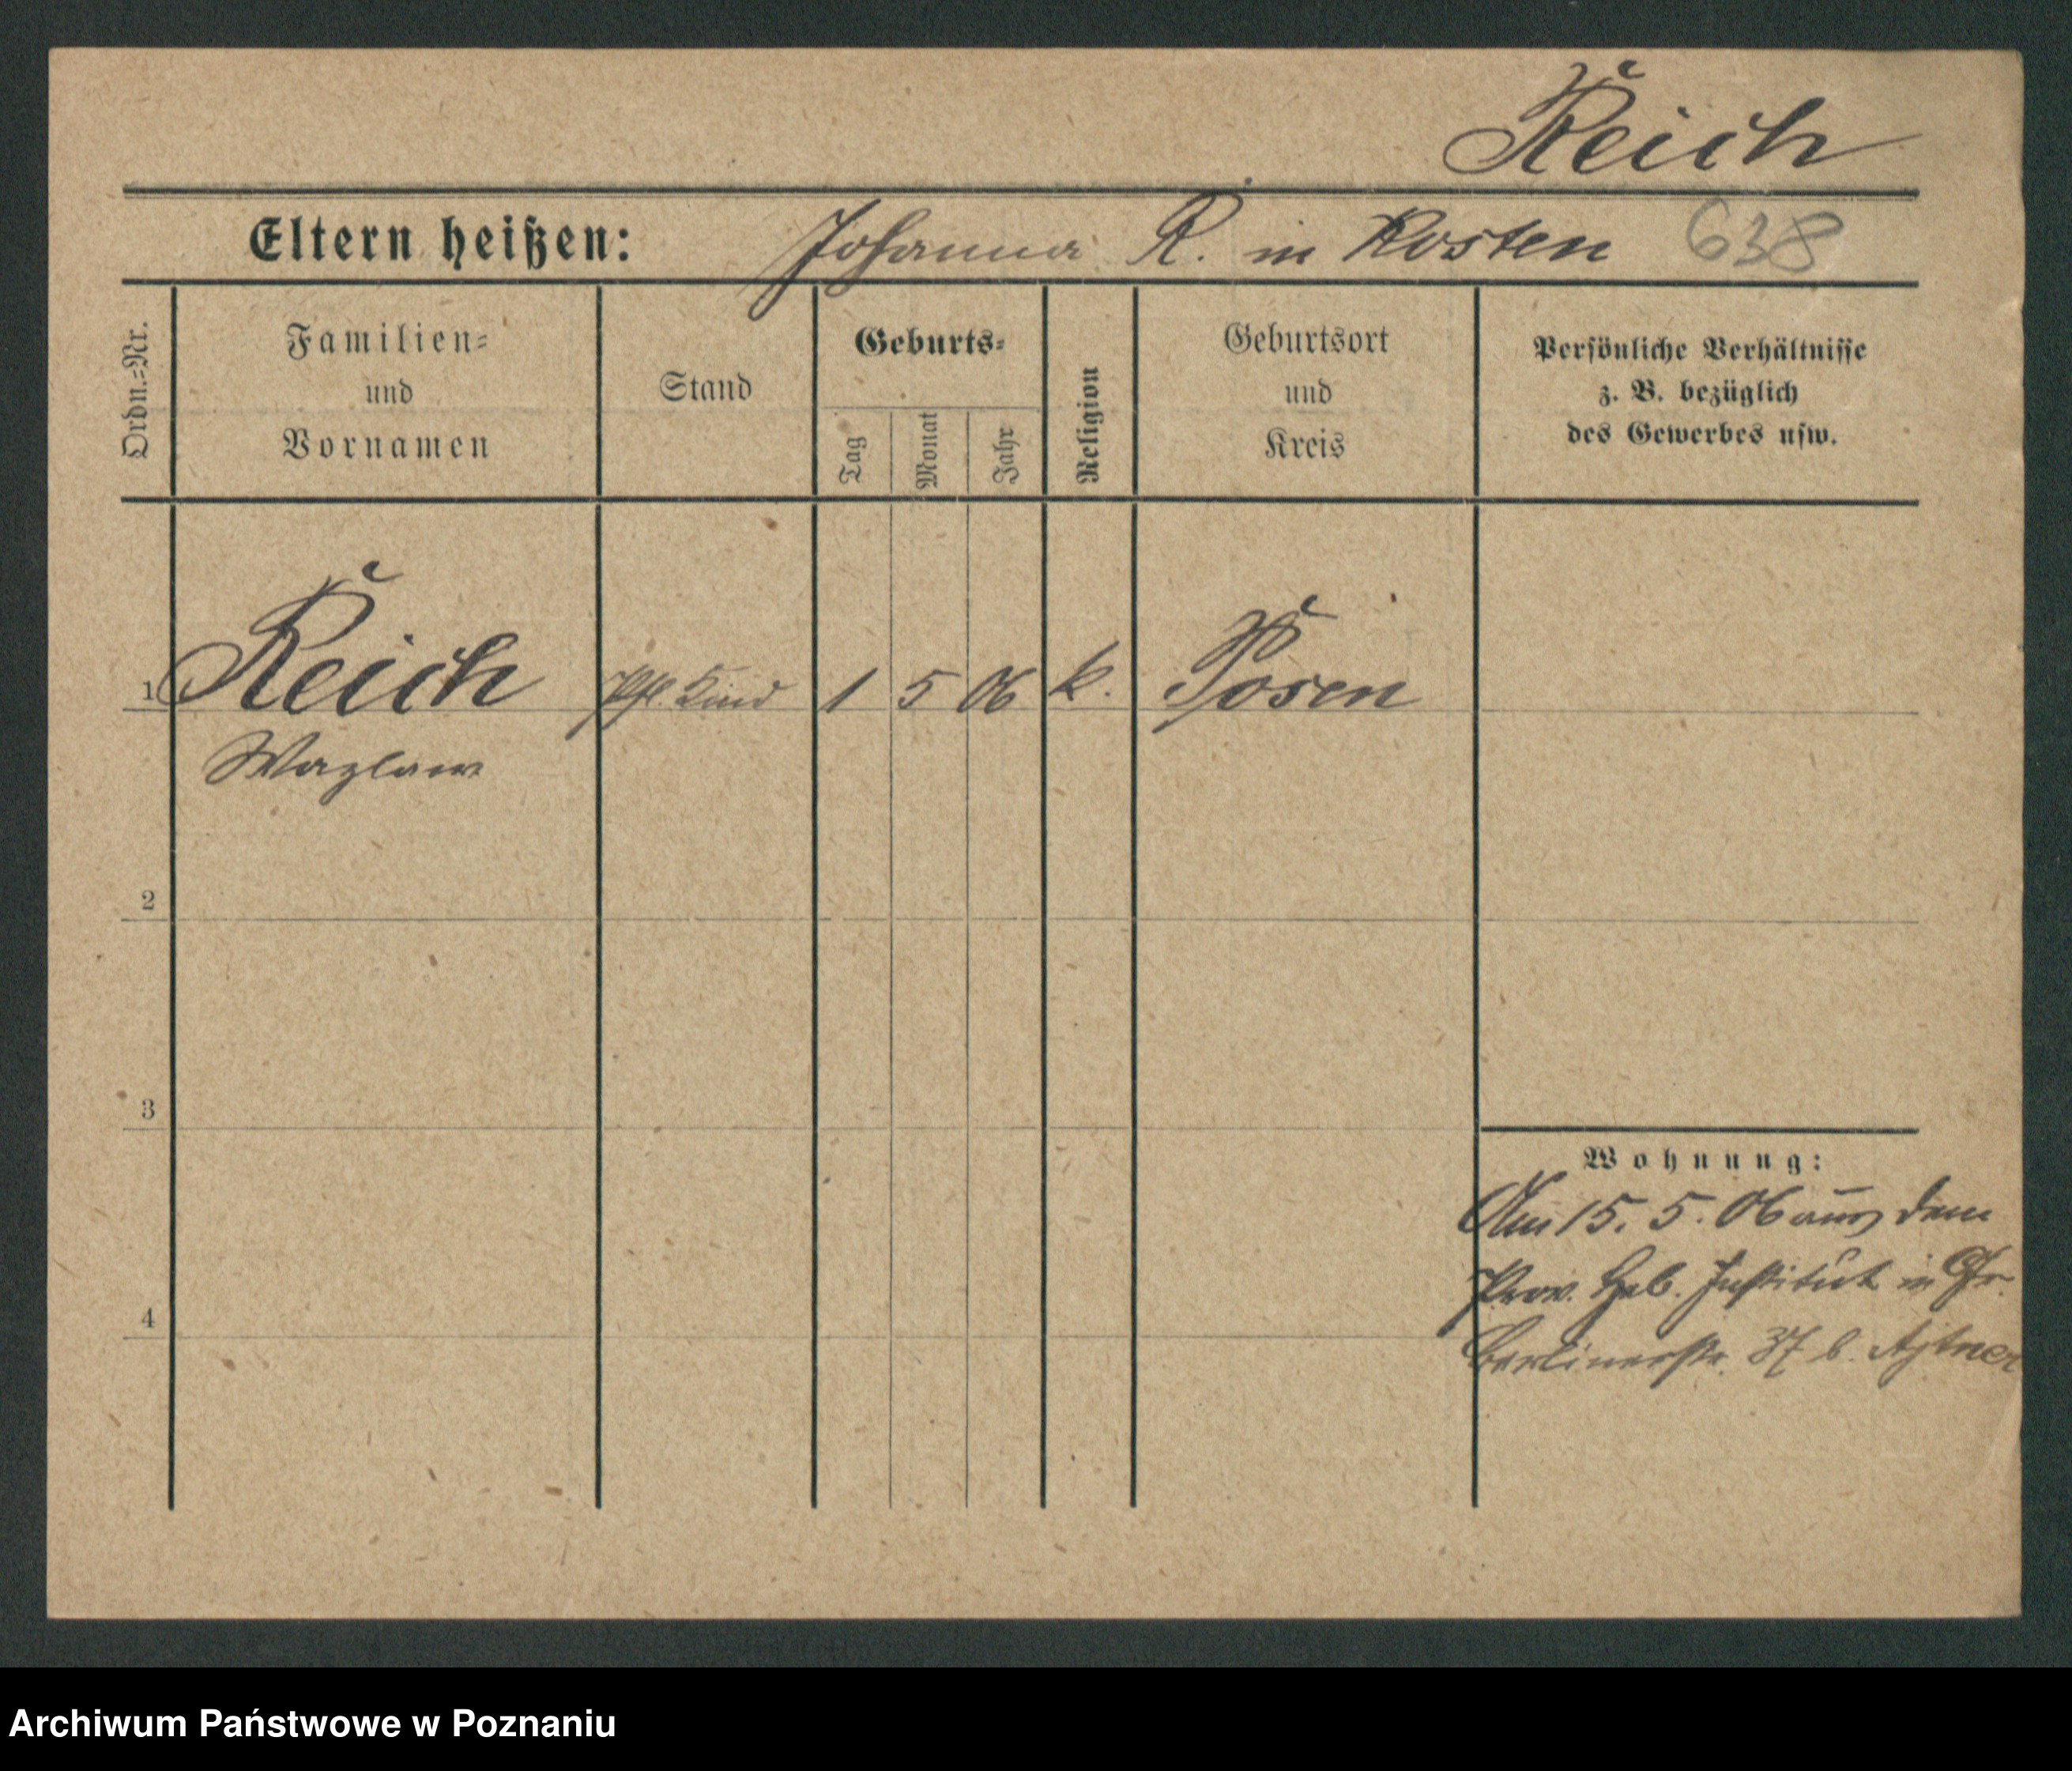 Reich
Eltern heißen: Johanna R. in Kosten 638
Ordn.=Nr.
Familien=
und
Vornamen
Stand
Geburts=
Tag
Monat
Jahr
Religion
Geburtsort
und
Kreis
Persönliche Verhältnisse
z. B. bezüglich
des Gewerbes usw.
1 Reich Pfl. Kind 1 5 06 k. Posen
Wazlaw
2
3
4
Wohnung:
Am 15. 5. 06 aus dem
Prov. Heb. Institut in Gr.
Berlinerstr. 37 b.
Archiwum Państwowe w Poznaniu